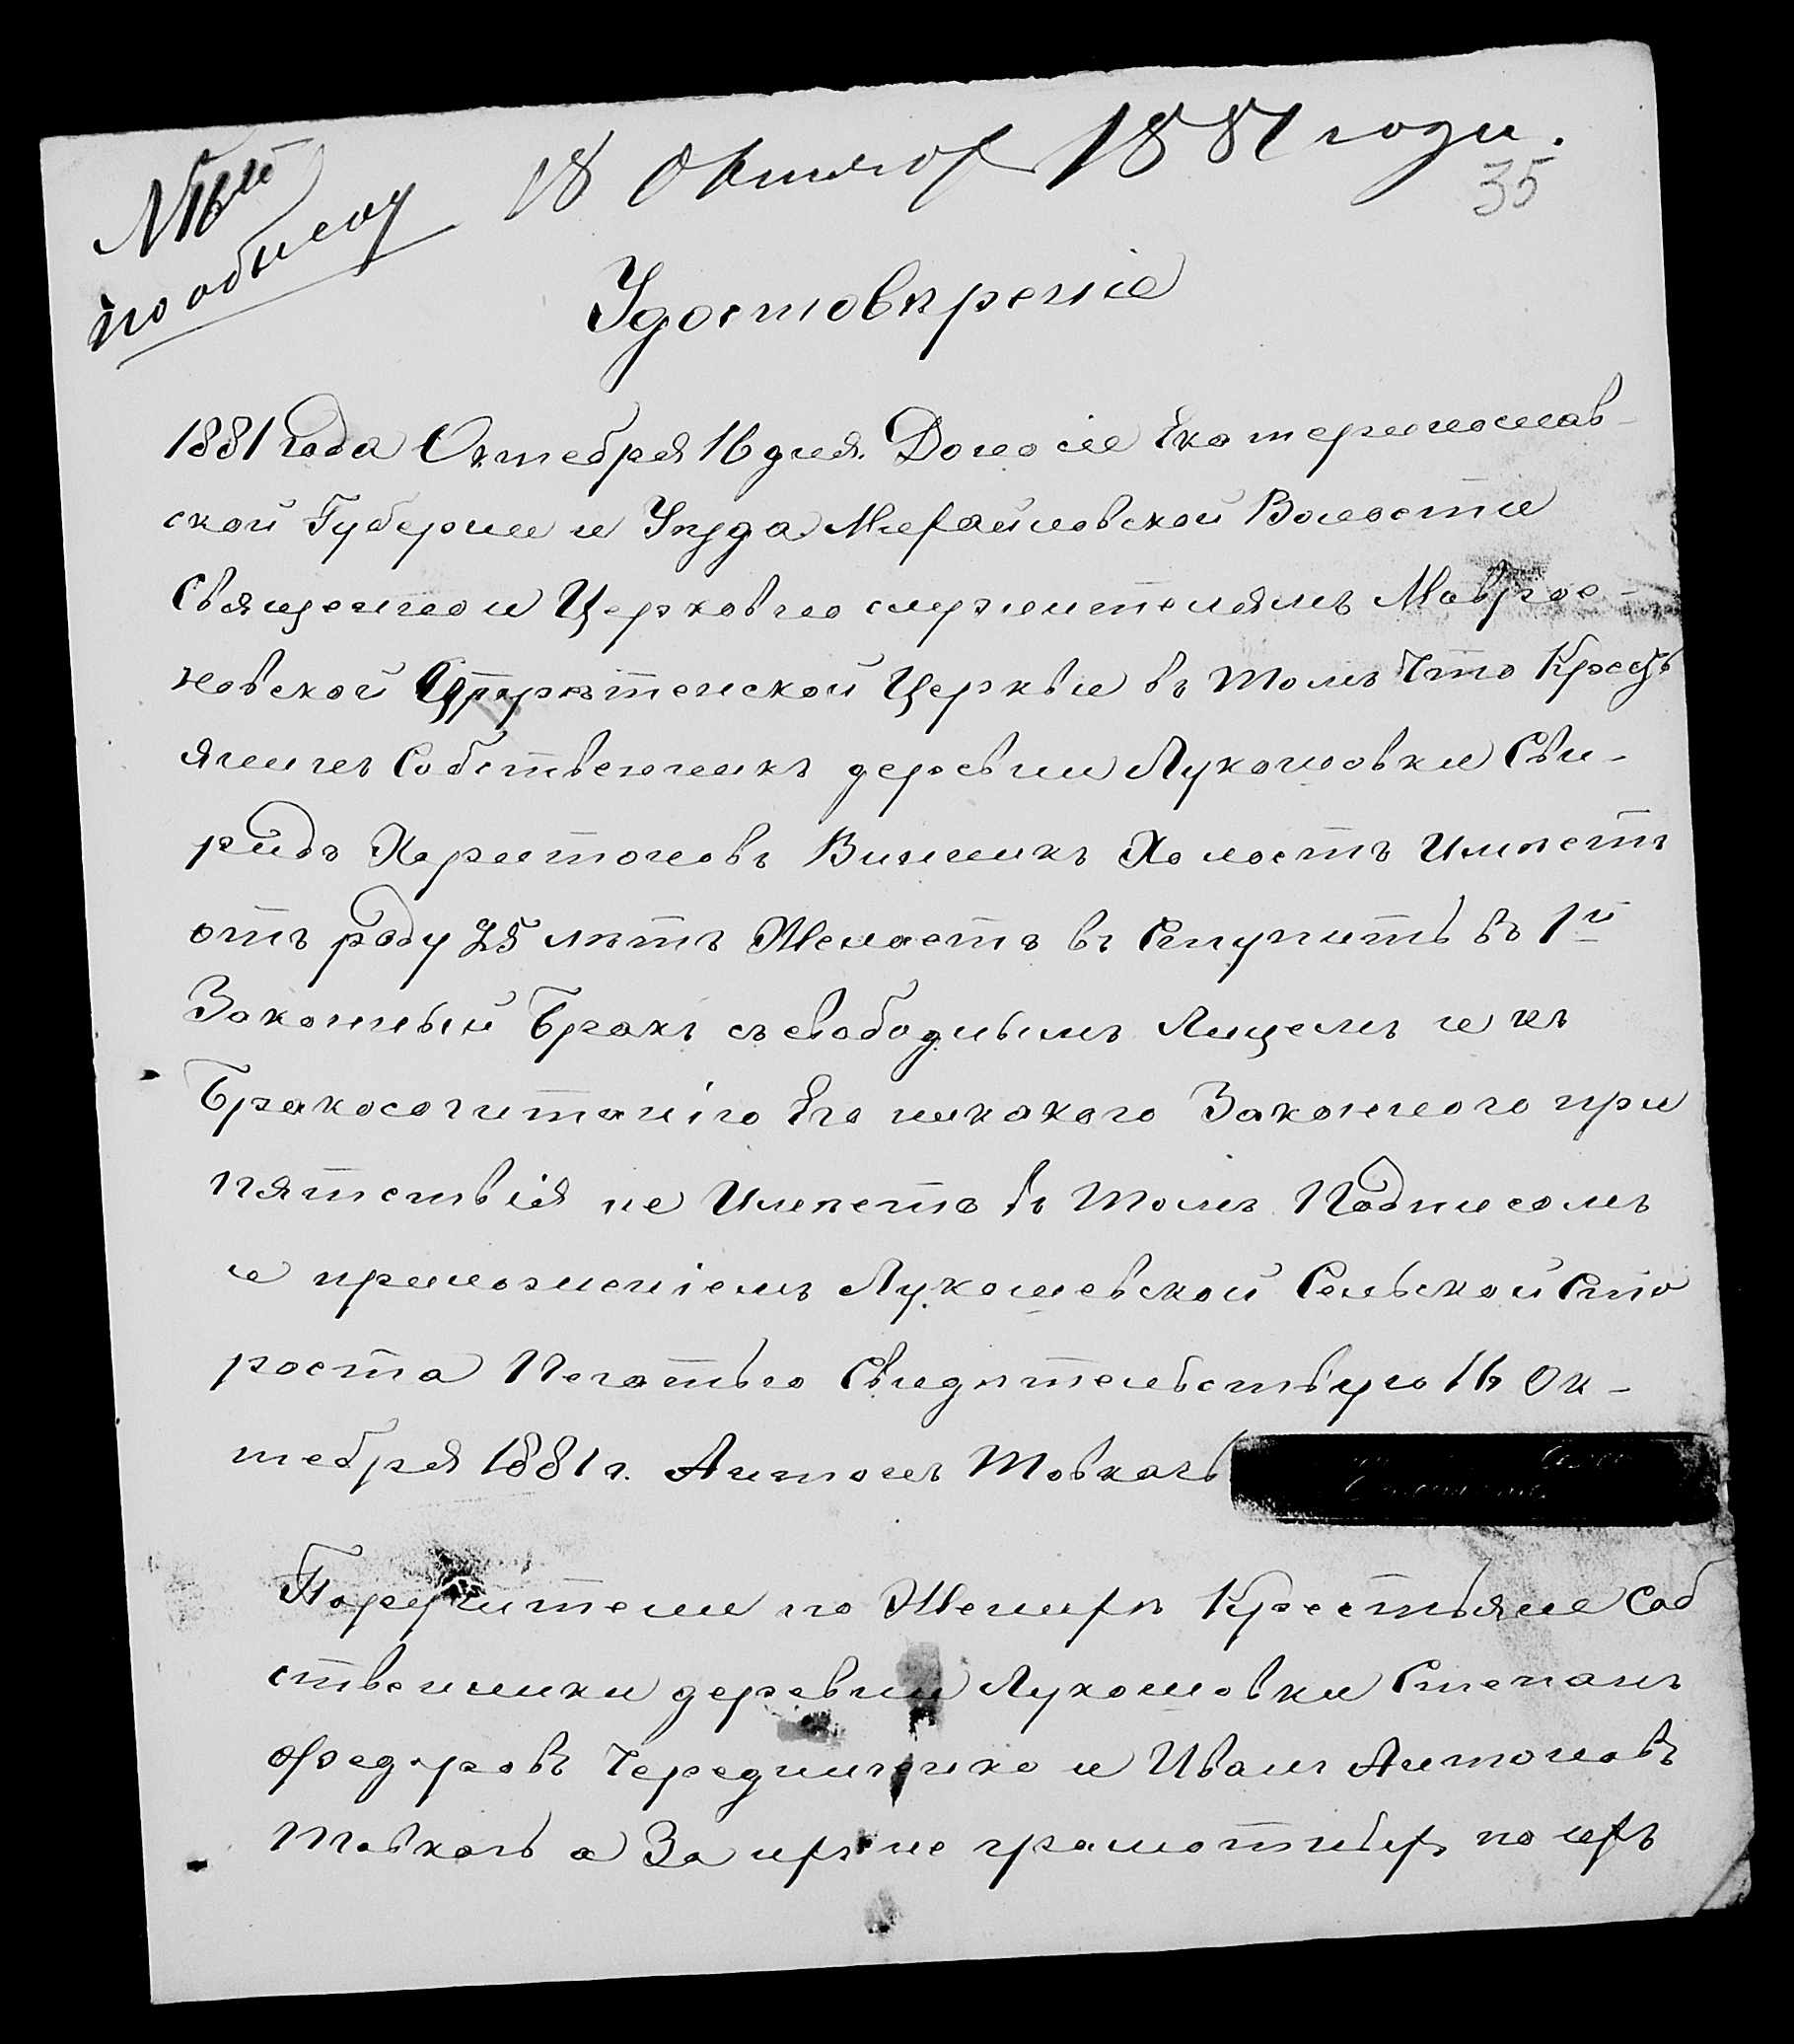 № 16й 18 октября 1881 года.
по обыску 35
Удостовѣреніе
1881 года Октебря 16 дня. Доно сіе Екатеринослав-
ской Губернии и Уѣзда Михайловской Волости
Священно и Церковно служителямъ Маврое-
новской Стрѣтенской Церкви въ Томъ Что Кресть
янинъ Собственникъ деревни Лукошовки Сви-
ридъ Харитоновъ Винникъ Холостъ Имѣетъ
отъ роду 25 лѣтъ Желаетъ въ Ступить въ 1й
Законный Бракъ съ свободнымъ Лицемъ и къ
Бракосочитанію Его никакого Законного при
пятствія не Имѣетъ въ Томъ Подписомъ
и приложеніемъ Лукошевской Сельской Ста
роста Печатью Свидѣтельствую 16 Ок-
тебря 1881 г. Антонъ Товкачь
Поручители по Женихѣ Крестьяне Соб
ственники деревни Лукошовки Степанъ
Федоровъ Чередниченко и Иванъ Антоновъ
Товкачь а За ихъ не грамотныхъ по ихъ